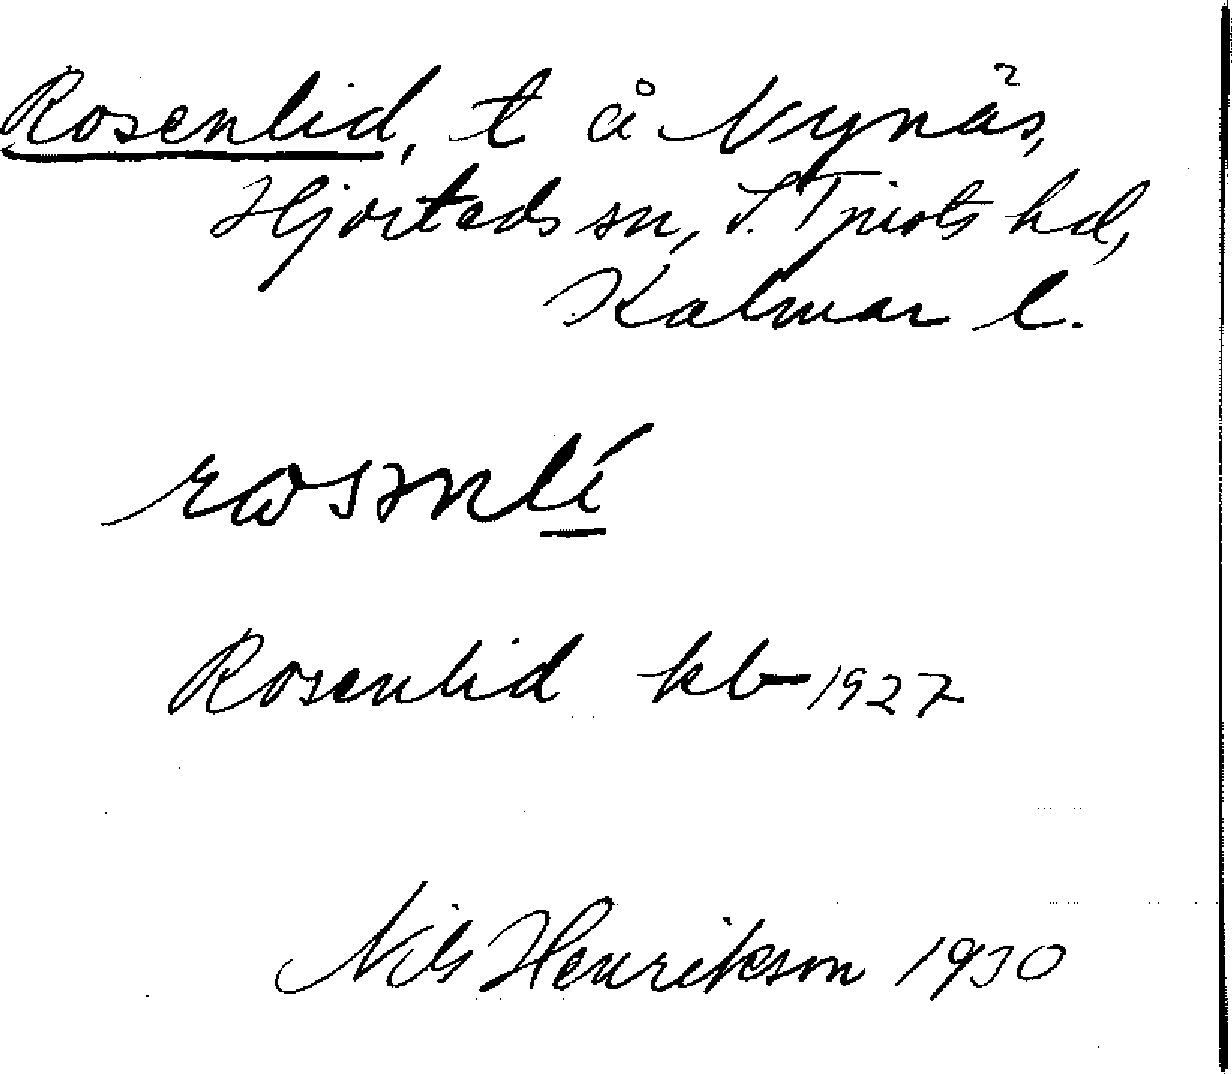 Rosenlid, t å Nynäs,
Hjorteds sn, S. Tjusts hd,
Kalmar l.
Rosenlid kb 1927
Nils Henrikson 1930